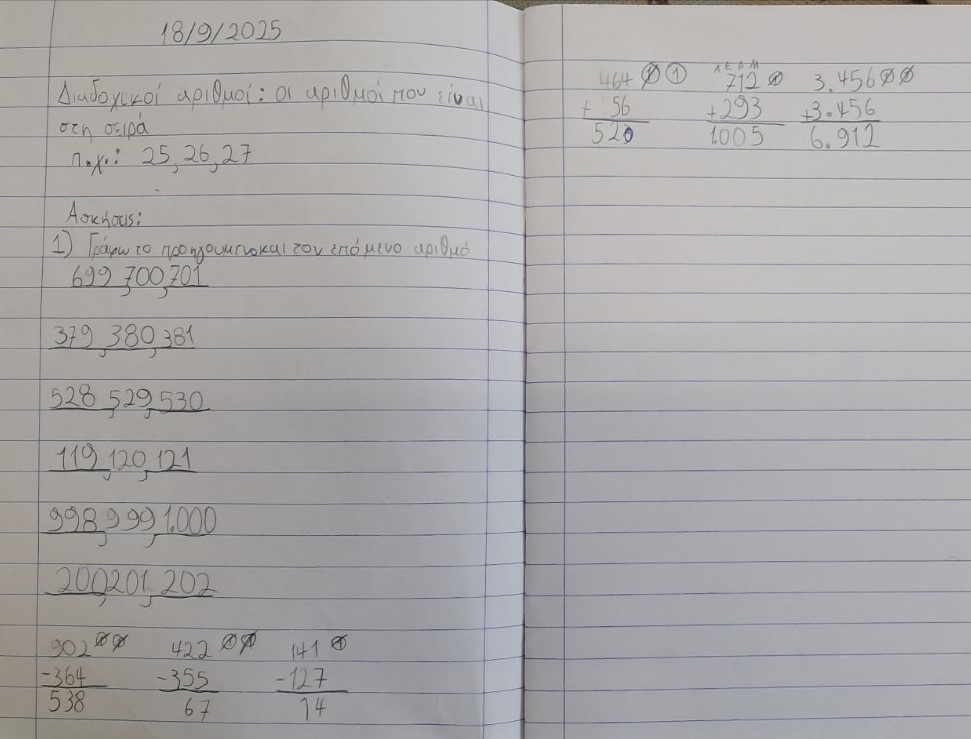 18/9/2025
Διαδοχικοί αριθμοί: οι αριθμοί που είναι
στη σειρά
π.χ.: 25, 26, 27
Ασκήσεις:
1) Γράφω το προηγούμενο και τον επόμενο αριθμό
699, 700, 701
379, 380, 381
528, 529, 530
119, 120, 121
998, 999, 1.000
200, 201, 202
902 422 141
-364 -355 -127
538 67 14
464 1 712 3.456
+ 56 +293 +3.456
520 1.005 6.912